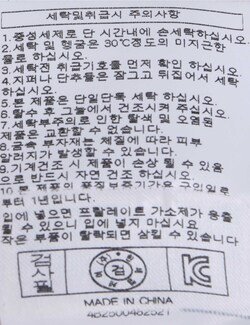 세탁및취급시 주의사항
1.중성세제로 단 시간내에 손세탁하십시오.
2.세탁 및 헹굼은 30℃정도의 미지근한
물로 하십시오.
3.세탁전 취급기호를 먼저 확인 하십시오
4.지퍼나 단추들은 잠그고 뒤집어서 세탁
하십시오.
5.본 제품은 단일단독 세탁 하십시오.
6.탈수 후 그늘에서 건조시켜 주십시오.
7.세탁부주의로 인한 탈색 및 오염된
제품은 교환할 수 없습니다.
8.금속 부자재는 체질에 따라 피부
알러지가 발생할 수 있습니다.
9.기계건조시 제품이 손상 될 수 있음
으로 반드시 자연 건조 하십시오.
10.본 제품의 품질보증기간은 구입일로
부터 1년입니다.
입에 넣으면 프탈레이트 가소제가 용출
될 수 있으니 입에 넣지 마십시요
작은 부품이 탈락되면 삼킬 수 있습니다
검사필
검
MADE IN CHINA